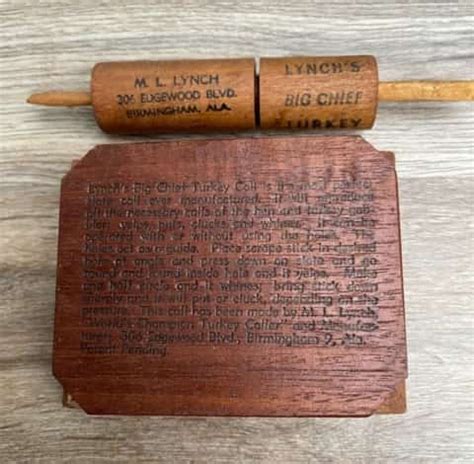 M. L. LYNCH
306 EDGEWOOD BLVD.
BIRMINGHAM, ALA.
LYNCH'S
BIG CHIEF
TURKEY
Lynch's Big Chief Turkey Call is the most
slate call ever manufactured. It will reproduce
all the necessary calls of the hen and turkey gob-
bler: yelps, puts, clucks and whines.
operated with or without using the holes. The
holes act as a guide. Place scrape stick in desired
hole at angle and press down on slate and go
round and round inside hole and it yelps. Make
one half circle and it whines; bring stick down
sharply and it will put or cluck, depending on the
pressure. This call has been made by M. L. Lynch,
"World's Champion Turkey Caller" and Manufac-
turers, 306 Edgewood Blvd., Birmingham 9, Ala.
Patent Pending.